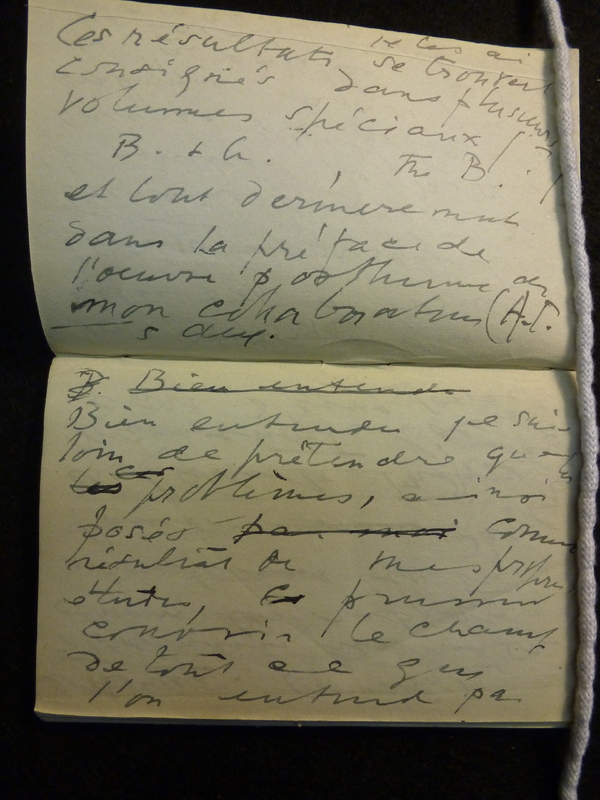 je les ai
Ces résultats se trouvent
consignés dans plusieurs
volumes spéciaux
B. + G. Th B.
et tout dernièrement
dans la préface de
l'oeuvre posthume de
mon collaborateur (A.T.
s deux.
B. Bien entendu
Bien entendu je suis
loin de prétendre que
les ces problèmes, ainsi
posés par moi comme
résultat de mes propres
études, puissent
couvrir le champ
de tout ce que
l'on entend par